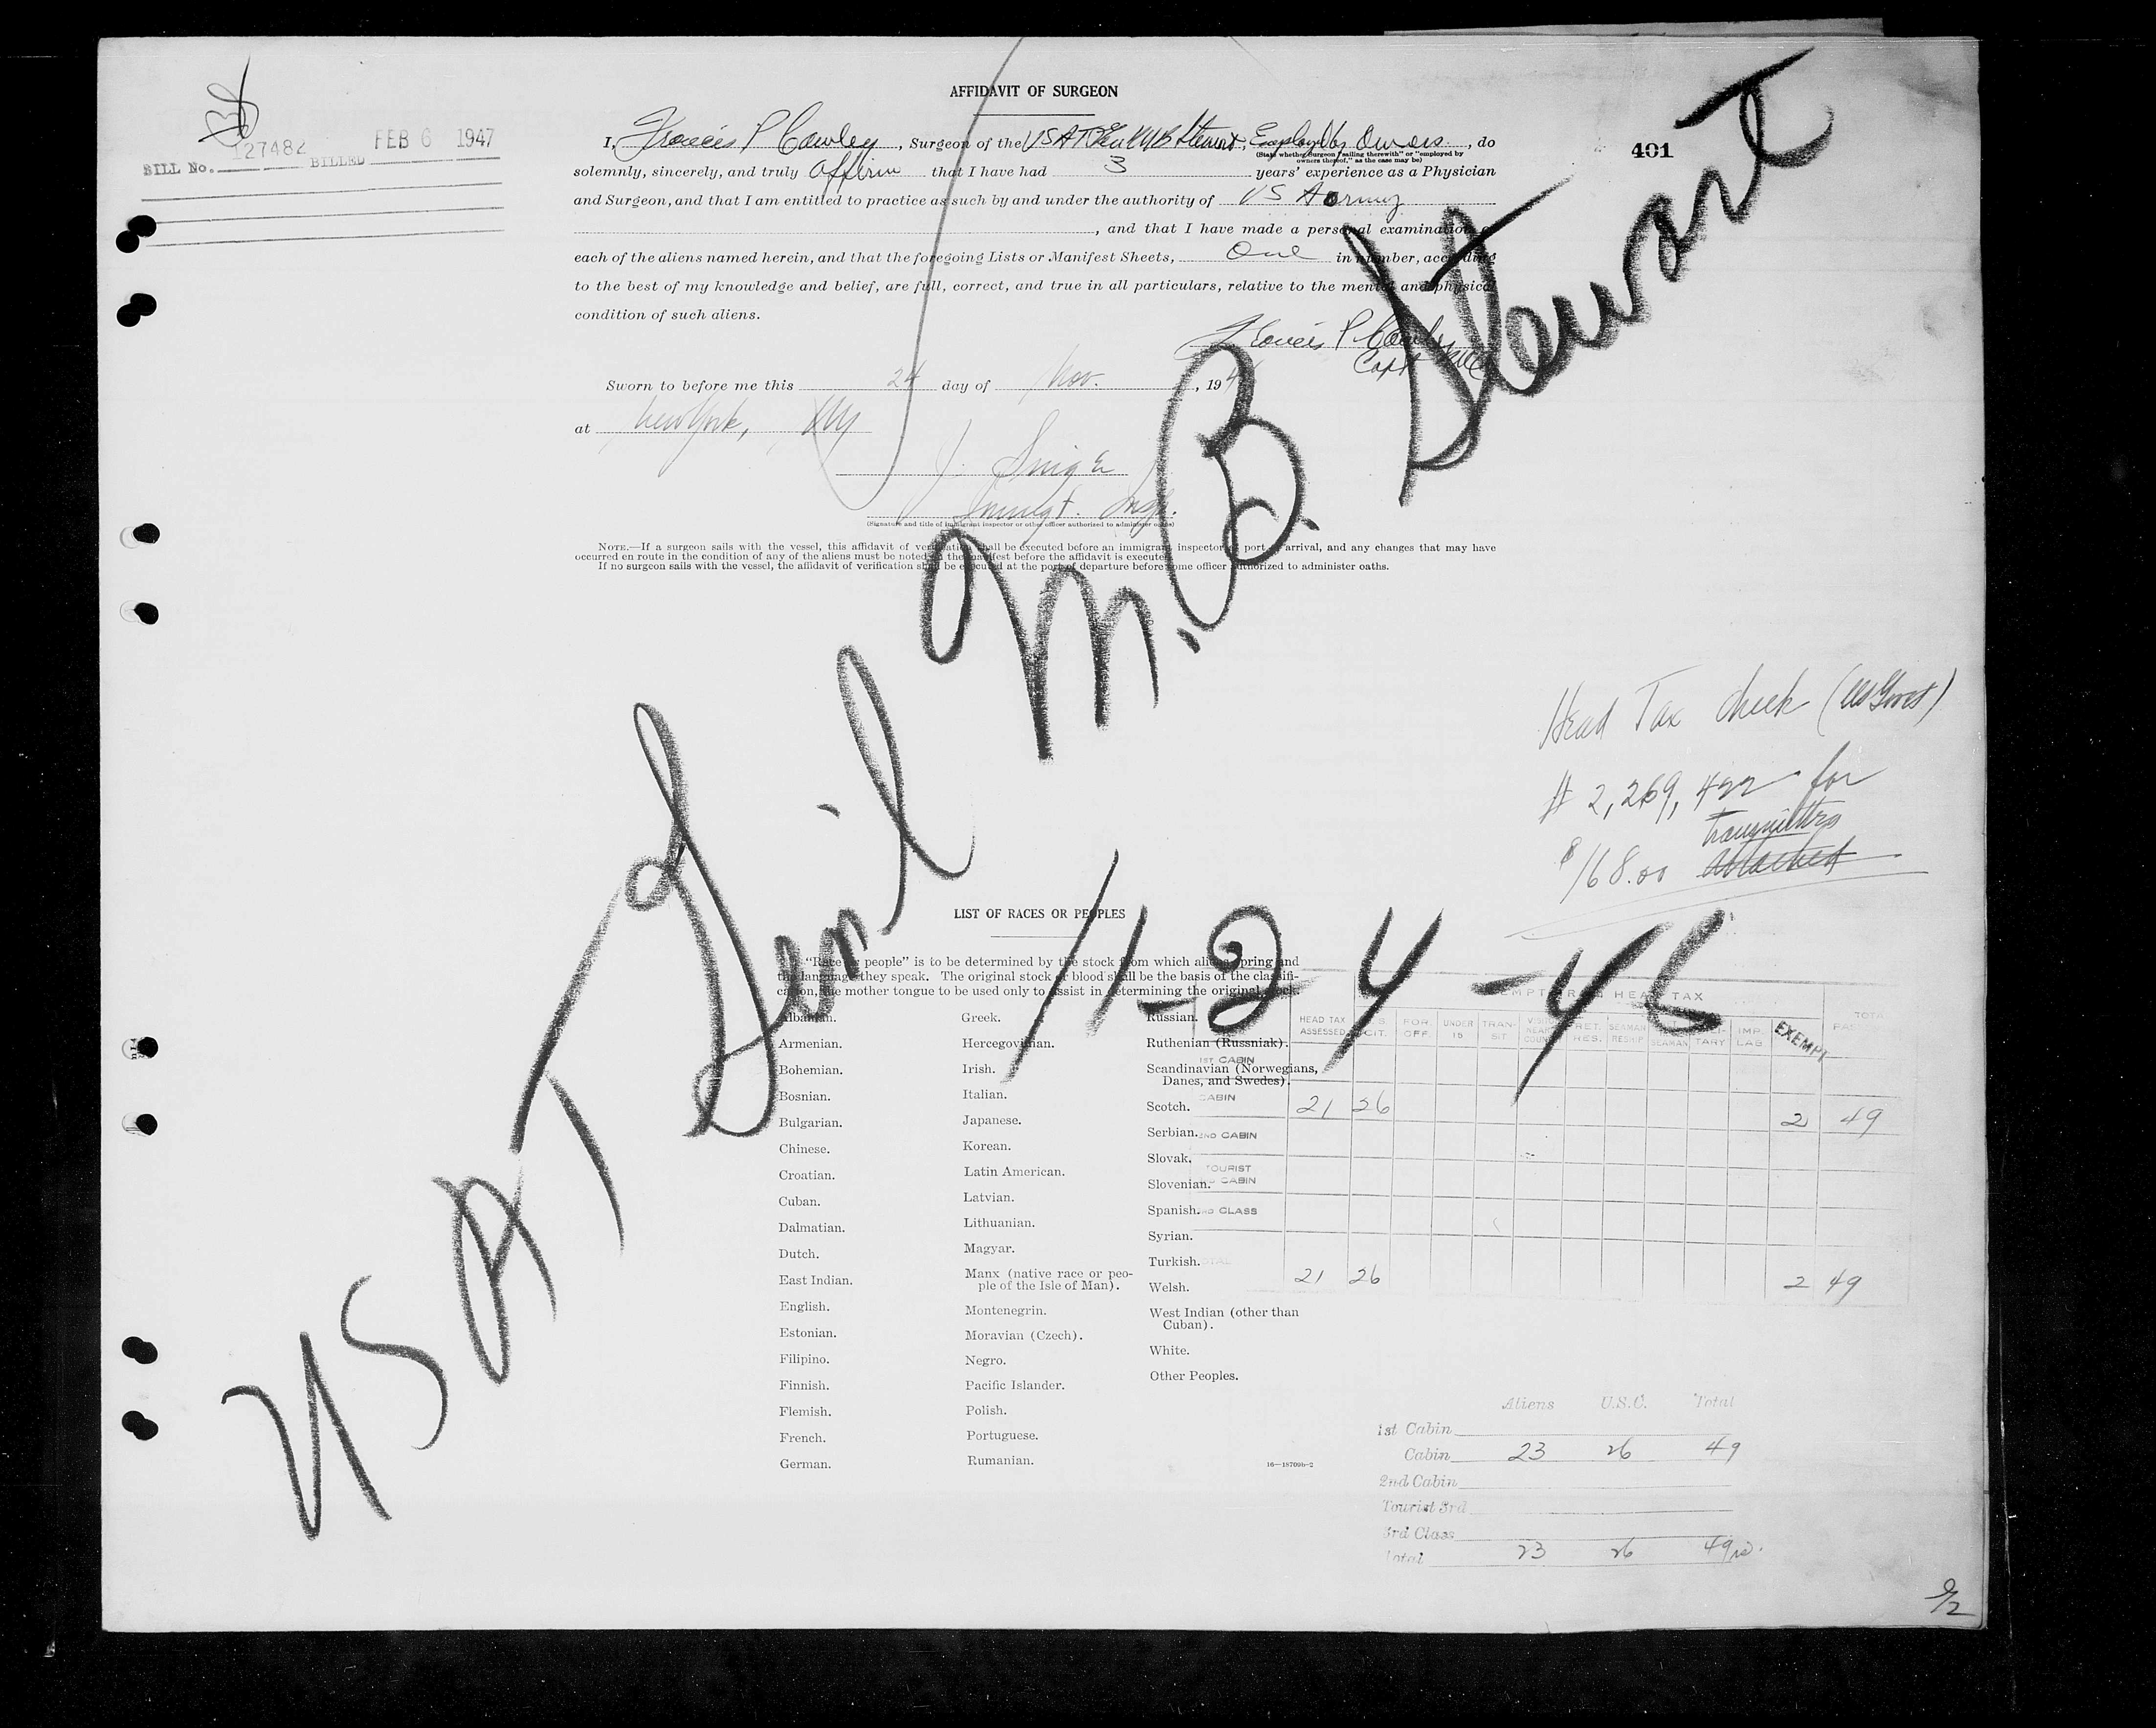 AFFIDAVIT OF SURGEON
401
BILL No. 127482 BILLED FEB 6 1947
I, Francis P Cawley, Surgeon of the USAT Genl MB Stewart, Employed by Owners, do
(State whether Surgeon "sailing therewith" or "employed by
owners thereof," as the case may be)
solemnly, sincerely, and truly affirm that I have had 3 years' experience as a Physician
and Surgeon, and that I am entitled to practice as such by and under the authority of US Army
, and that I have made a personal examination of
each of the aliens named herein, and that the foregoing Lists or Manifest Sheets, One in number, according
to the best of my knowledge and belief, are full, correct, and true in all particulars, relative to the mental and physical
condition of such aliens.
Francis P Cawley
Capt MC
Sworn to before me this 24 day of Nov., 194
at New York, NY
J. Singer
Immigt. Insp.
(Signature and title of immigrant inspector or other officer authorized to administer oaths)
NOTE.—If a surgeon sails with the vessel, this affidavit of verification shall be executed before an immigrant inspector at port of arrival, and any changes that may have
occurred en route in the condition of any of the aliens must be noted on the manifest before the affidavit is executed.
If no surgeon sails with the vessel, the affidavit of verification shall be executed at the port of departure before some officer authorized to administer oaths.
USAT Genl M.B. Stewart
11-24-46
Head Tax check (US Govt)
# 2,269,422 for
transmitters
$168.00 attached
LIST OF RACES OR PEOPLES
"Race or people" is to be determined by the stock from which aliens spring and
the language they speak. The original stock or blood shall be the basis of the classifi-
cation, the mother tongue to be used only to assist in determining the original stock.
Albanian.
Armenian.
Bohemian.
Bosnian.
Bulgarian.
Chinese.
Croatian.
Cuban.
Dalmatian.
Dutch.
East Indian.
English.
Estonian.
Filipino.
Finnish.
Flemish.
French.
German.
Greek.
Hercegovinian.
Irish.
Italian.
Japanese.
Korean.
Latin American.
Latvian.
Lithuanian.
Magyar.
Manx (native race or peo-
ple of the Isle of Man).
Montenegrin.
Moravian (Czech).
Negro.
Pacific Islander.
Polish.
Portuguese.
Rumanian.
Russian.
Ruthenian (Russniak).
Scandinavian (Norwegians,
Danes, and Swedes).
Scotch.
Serbian.
Slovak.
Slovenian.
Spanish.
Syrian.
Turkish.
Welsh.
West Indian (other than
Cuban).
White.
Other Peoples.
16—18700b-2
HEAD TAX
HEAD TAX ASSESSED CIT. FOR. OFF. UNDER 15 TRAN-SIT RET. RES. SEAMAN RESHIP SEAMAN TARY IMP. LAG EXEMPT
1ST CABIN
CABIN 21 26 2 49
2ND CABIN
TOURIST
CABIN
CLASS
21 26 2 49
Aliens U.S.C. Total
1st Cabin
Cabin 23 26 49
2nd Cabin
Tourist 3rd
3rd Class
Total 23 26 49